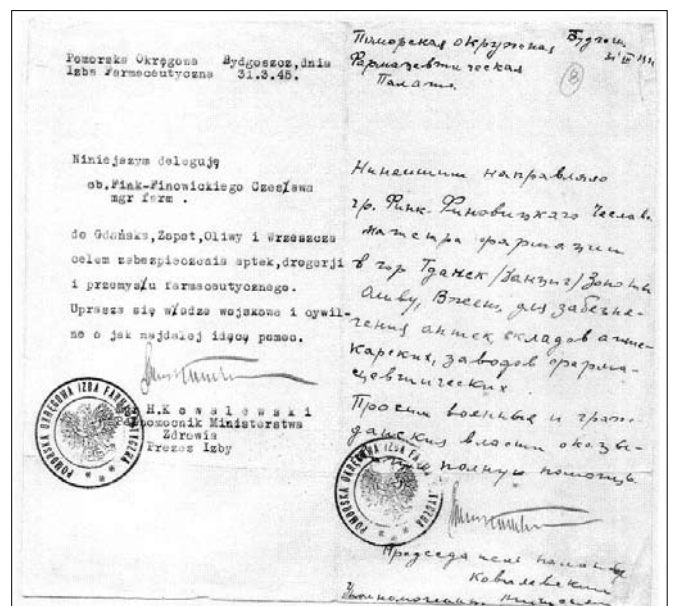 Pomorska Okręgowa Bydgoszcz, dnia
Izba Farmaceutyczna 31.3.45.
Niniejszym deleguję
ob. Fink-Finowickiego Czesława
mgr farm .
do Gdańska, Zopot, Oliwy i Wrzeszcza
celem zabezpieczenia aptek, drogerji
i przemysłu farmaceutycznego.
Uprasza się władze wojskowe i cywil-
ne o jak najdalej idącą pomoc.
H.Kowalewski
Pełnomocnik Ministerstwa
Zdrowia
Prezes Izby
POMORSKA OKRĘGOWA IZBA FARMACEUTYCZNA
Поморская окружная
Фармацевтическая
Палата.
8
Нинейшим направляю
гр. Финк-Финовицкаго Чеслава
магистра фармации
в гор Гданск /Данциг/ Зопоты
Оливу, для забезпе-
чения аптек, складов апте-
карских, заводов фарма-
цевтических.
Просим военные и граж-
данские власти оказы-
полную помощь.
POMORSKA OKRĘGOWA IZBA FARMACEUTYCZNA
Председатель
Ковалевский